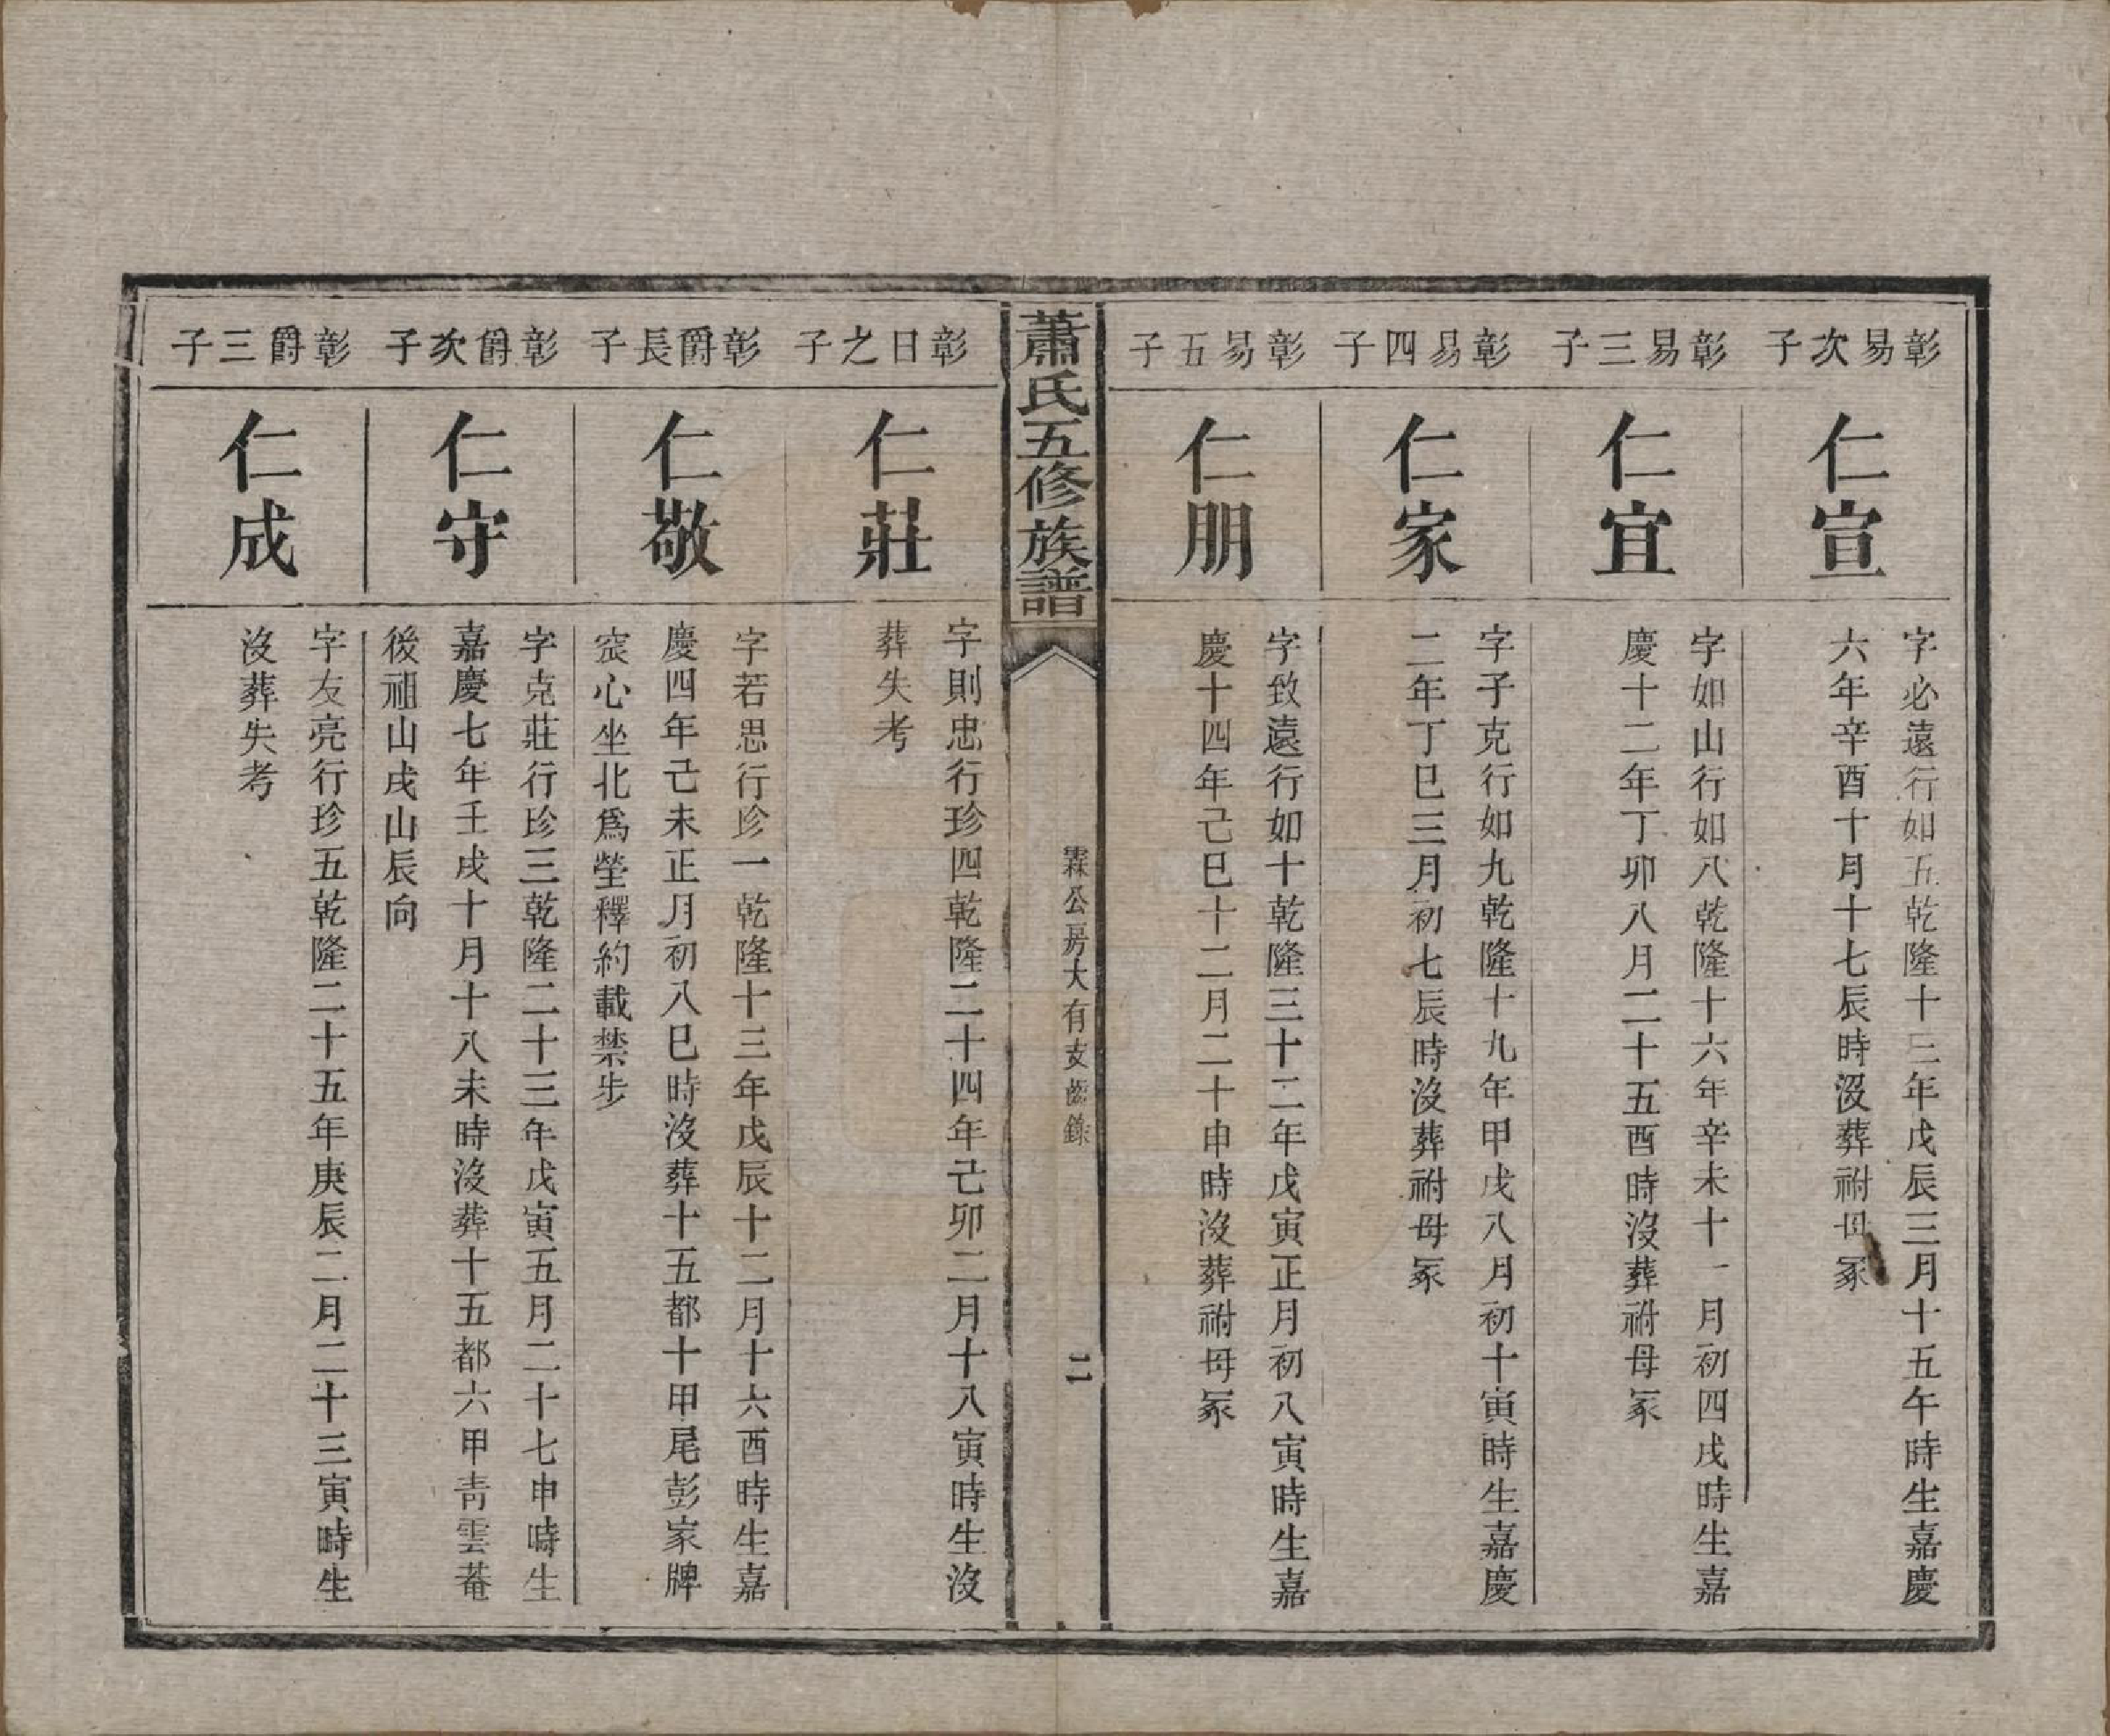 彰易次子
仁宣
字必遠行如五乾隆十三年戊辰三月十五午時生嘉慶
六年辛酉十月十七辰時沒葬祔母冢
彰易三子
仁宜
字如山行如八乾隆十六年辛未十一月初四戌時生嘉
慶十二年丁卯八月二十五酉時沒葬祔母冢
彰易四子
仁家
字子克行如九乾隆十九年甲戌八月初十寅時生嘉慶
二年丁巳三月初七辰時沒葬祔母冢
彰易五子
仁朋
字致遠行如十乾隆三十二年戊寅正月初八寅時生嘉
慶十四年己巳十二月二十申時沒葬祔母冢
蕭氏五修族譜
霖公房大有支齒錄
二
彰日之子
仁莊
字則忠行珍四乾隆二十四年己卯二月十八寅時生沒
葬失考
彰爵長子
仁敬
字若思行珍一乾隆十三年戊辰十二月十六酉時生嘉
慶四年己未正月初八巳時沒葬十五都十甲尾彭家牌
宲心坐北爲塋釋約載禁步
彰爵次子
仁守
字克莊行珍三乾隆二十三年戊寅五月二十七申時生
嘉慶七年壬戌十月十八未時沒葬十五都六甲青雲菴
後祖山戌山辰向
彰爵三子
仁成
字友亮行珍五乾隆二十五年庚辰二月二十三寅時生
沒葬失考